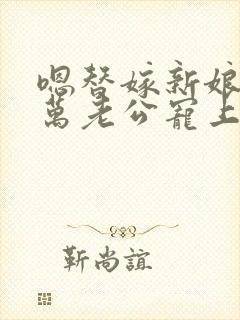 嗯替嫁新娘
萬老公寵上
靳尚誼